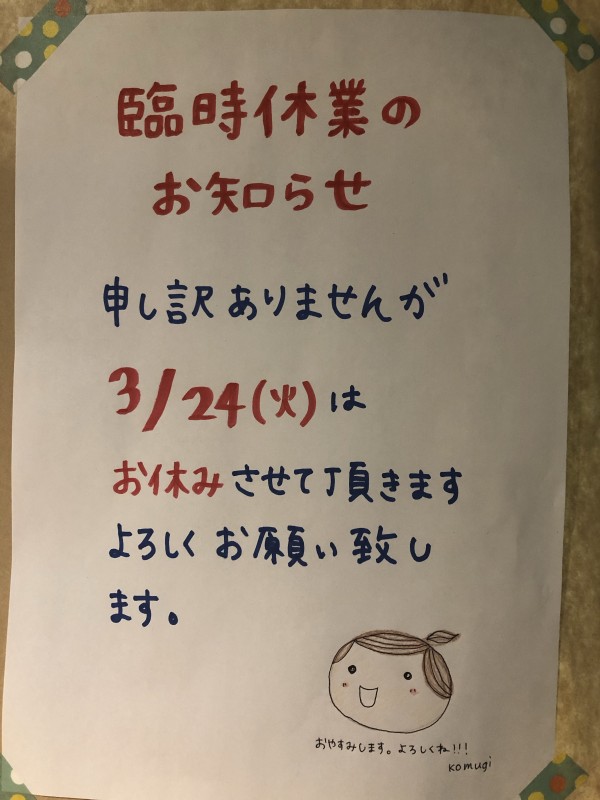 臨時休業の
お知らせ
申し訳ありませんが
3/24(火)は
お休みさせて頂きます
よろしくお願い致し
ます。
おやすみします。よろしくね!!!
komugi